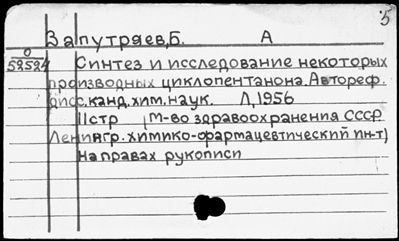 5
Запутряев, Б. А
О
52524
Синтез и исследование некоторых
производных циклопентанона. Автореф.
дисс. канд. хим. наук. Л, 1956
11стр (М-во здравоохранения СССР
Ленингр. химико-фармацевтический ин-т)
На правах рукописи